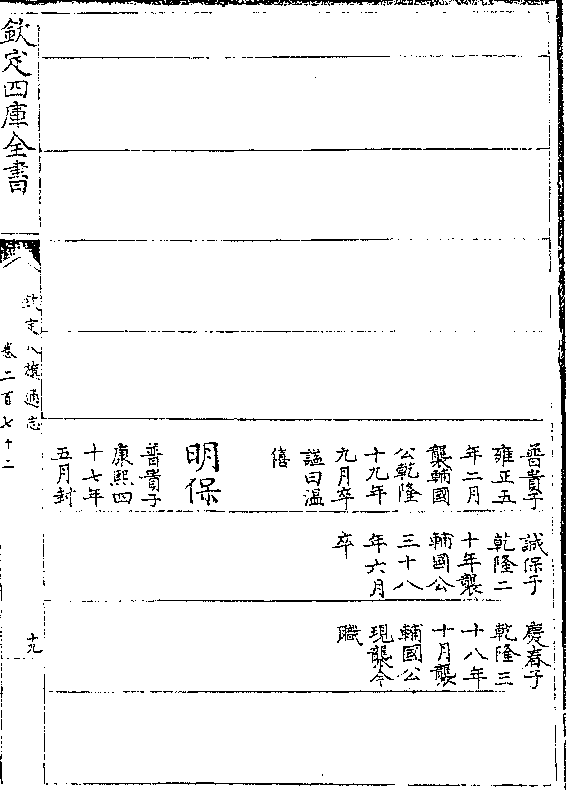 普貴子
雍正五
年二月
襲輔國
公乾隆
十九年
九月卒
諡曰温
僖
明保
普貴子
康熙四
十七年
五月封
誠保子
乾隆二
十年襲
輔國公
三十八
年六月
卒
慶春子
乾隆三
十八年
十月襲
輔國公
現襲今
職
欽定四庫全書
欽定八旗通志
卷二百七十二
十九